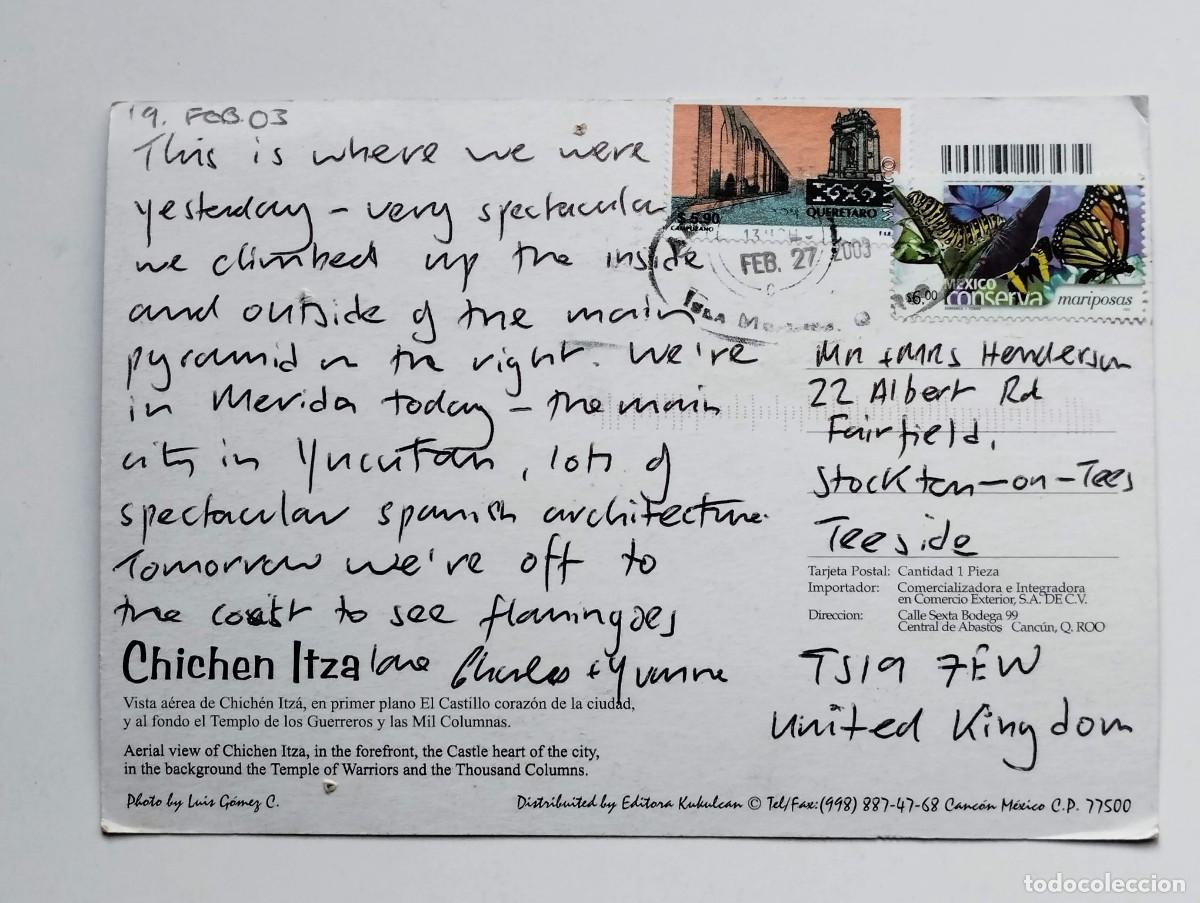 19. FEB. 03
This is where we were
yesterday - very spectacular
we climbed up the inside
and outside of the main
pyramid on the right. We're
in Merida today - the main
city in Yucutan, lots of
spectacular spanish architecture.
Tomorrow we're off to
the coast to see flamingoes
love Charles + Yvonne
Chichen Itza
Vista aérea de Chichén Itzá, en primer plano El Castillo corazón de la ciudad,
y al fondo el Templo de los Guerreros y las Mil Columnas.
Aerial view of Chichen Itza, in the forefront, the Castle heart of the city,
in the background the Temple of Warriors and the Thousand Columns.
Photo by Luis Gómez C.
Distributed by Editora Kukulcan © Tel/Fax:(998) 887-47-68 Cancón México C.P. 77500
$ 5.90
CAMPUZANO
QUERETARO
FEB. 27 2003
ISLA
$6.00
MEXICO
conserva
mariposas
Mr + Mrs Henderson
22 Albert Rd
Fairfield,
Stockton-on-Tees
Teeside
Tarjeta Postal: Cantidad 1 Pieza
Importador: Comercializadora e Integradora
en Comercio Exterior, S.A. DE C.V.
Direccion: Calle Sexta Bodega 99
Central de Abastos Cancún, Q. ROO
TS19 7EW
United Kingdom
todocoleccion